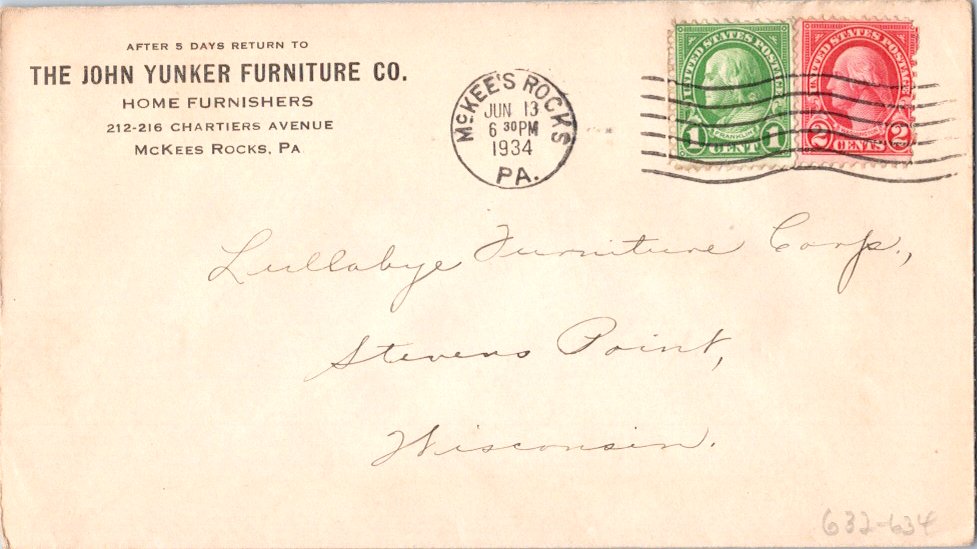 AFTER 5 DAYS RETURN TO
THE JOHN YUNKER FURNITURE CO.
HOME FURNISHERS
212-216 CHARTIERS AVENUE
McKEES ROCKS, PA
McKEE'S ROCKS
JUN 13
6 30 PM
1934
PA.
UNITED STATES POSTAGE
FRANKLIN
1 CENT 1
UNITED STATES POSTAGE
2 CENTS 2
Lullabye Furniture Corp.,
Stevens Point,
Wisconsin.
632-634